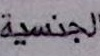 لجنسية